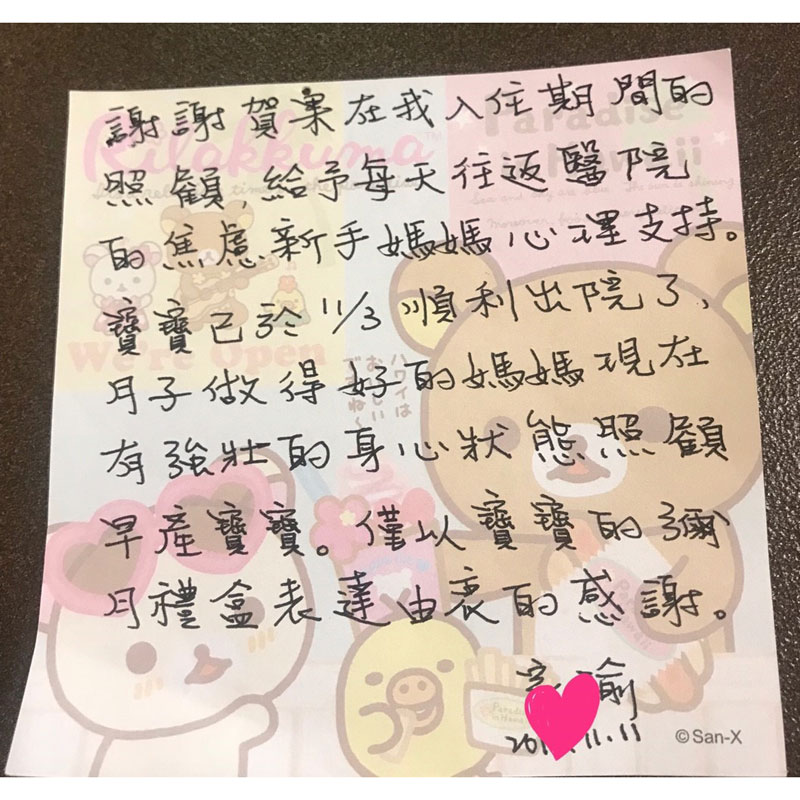 謝謝賀果在我入住期間的
照顧,給予每天往返醫院
的焦慮新手媽媽心理支持。
寶寶已於 11/3 順利出院了,
月子做得好的媽媽現在
有強壯的身心狀態照顧
早產寶寶。僅以寶寶的彌
月禮盒表達由衷的感謝。
瑜
11.11
Rilakkuma
Paradise
We're Open
ハワイは
おいしい
ですね〜
©San-X